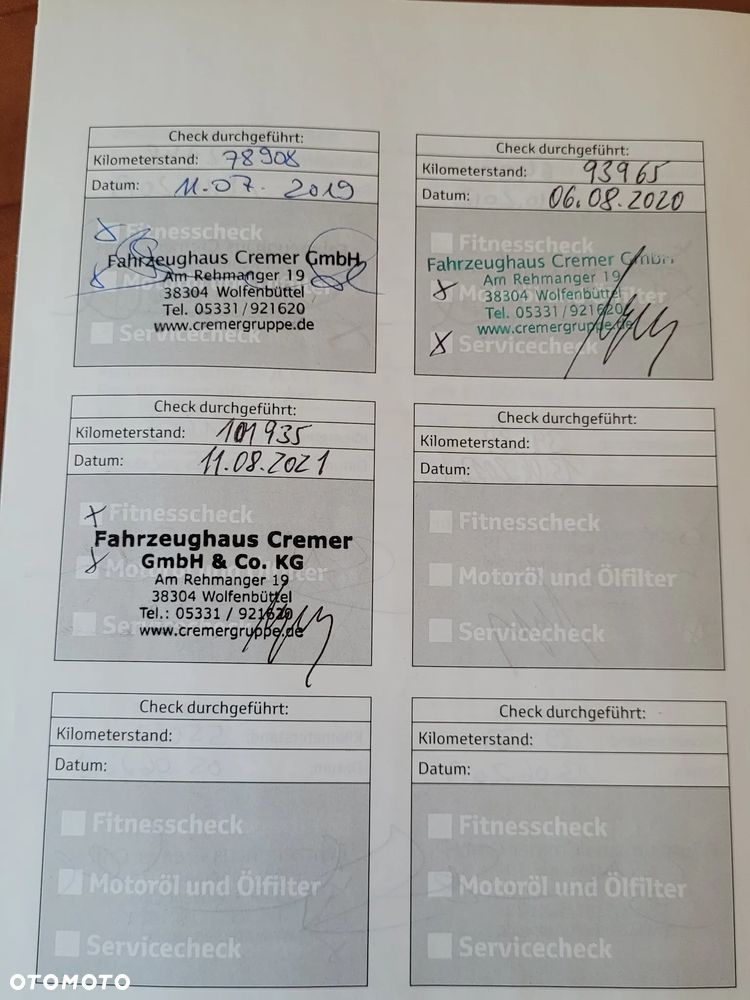 Check durchgeführt:
Kilometerstand: 78908
Datum: 11.07. 2019
Fitnesscheck
Fahrzeughaus Cremer GmbH
Am Rehmanger 19
38304 Wolfenbüttel
Tel. 05331/921620
www.cremergruppe.de
Servicecheck
Check durchgeführt:
Kilometerstand: 93965
Datum: 06.08.2020
Fitnesscheck
Fahrzeughaus Cremer GmbH
Am Rehmanger 19
38304 Wolfenbüttel
Tel. 05331/921620
www.cremergruppe.de
Servicecheck
Check durchgeführt:
Kilometerstand: 101935
Datum: 11.08.2021
Fitnesscheck
Fahrzeughaus Cremer
GmbH & Co. KG
Am Rehmanger 19
38304 Wolfenbüttel
Tel.: 05331 / 921620
www.cremergruppe.de
Check durchgeführt:
Kilometerstand:
Datum:
Fitnesscheck
Motoröl und Ölfilter
Servicecheck
Check durchgeführt:
Kilometerstand:
Datum:
Fitnesscheck
Motoröl und Ölfilter
Servicecheck
Check durchgeführt:
Kilometerstand:
Datum:
Fitnesscheck
Motoröl und Ölfilter
Servicecheck
OTOMOTO